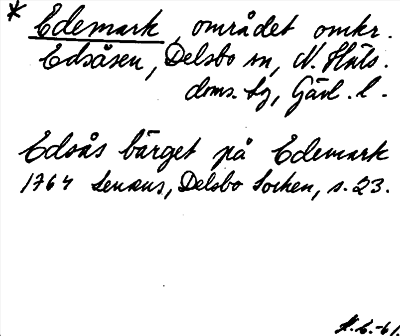 * Edemark, området omkr.
Edsåsen, Delsbo sn, N. Häls.
doms. sg, Gävl. l.
Edsås bärget på Edemark
1764 Lenæus, Delsbo Socken, s. 23.